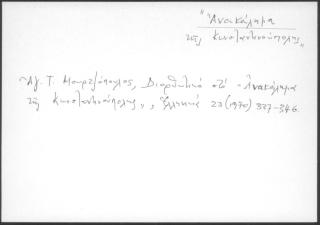 "Ἀνακάλημα
τῆς Κωνσταντινούπολης"
Ἀγ. Τ. Μουρτζόπουλος, Διορθωτικά στό "Ἀνακάλημα
τῆς Κωνσταντινούπολης", Ἑλληνικά 23 (1970) 337-346.